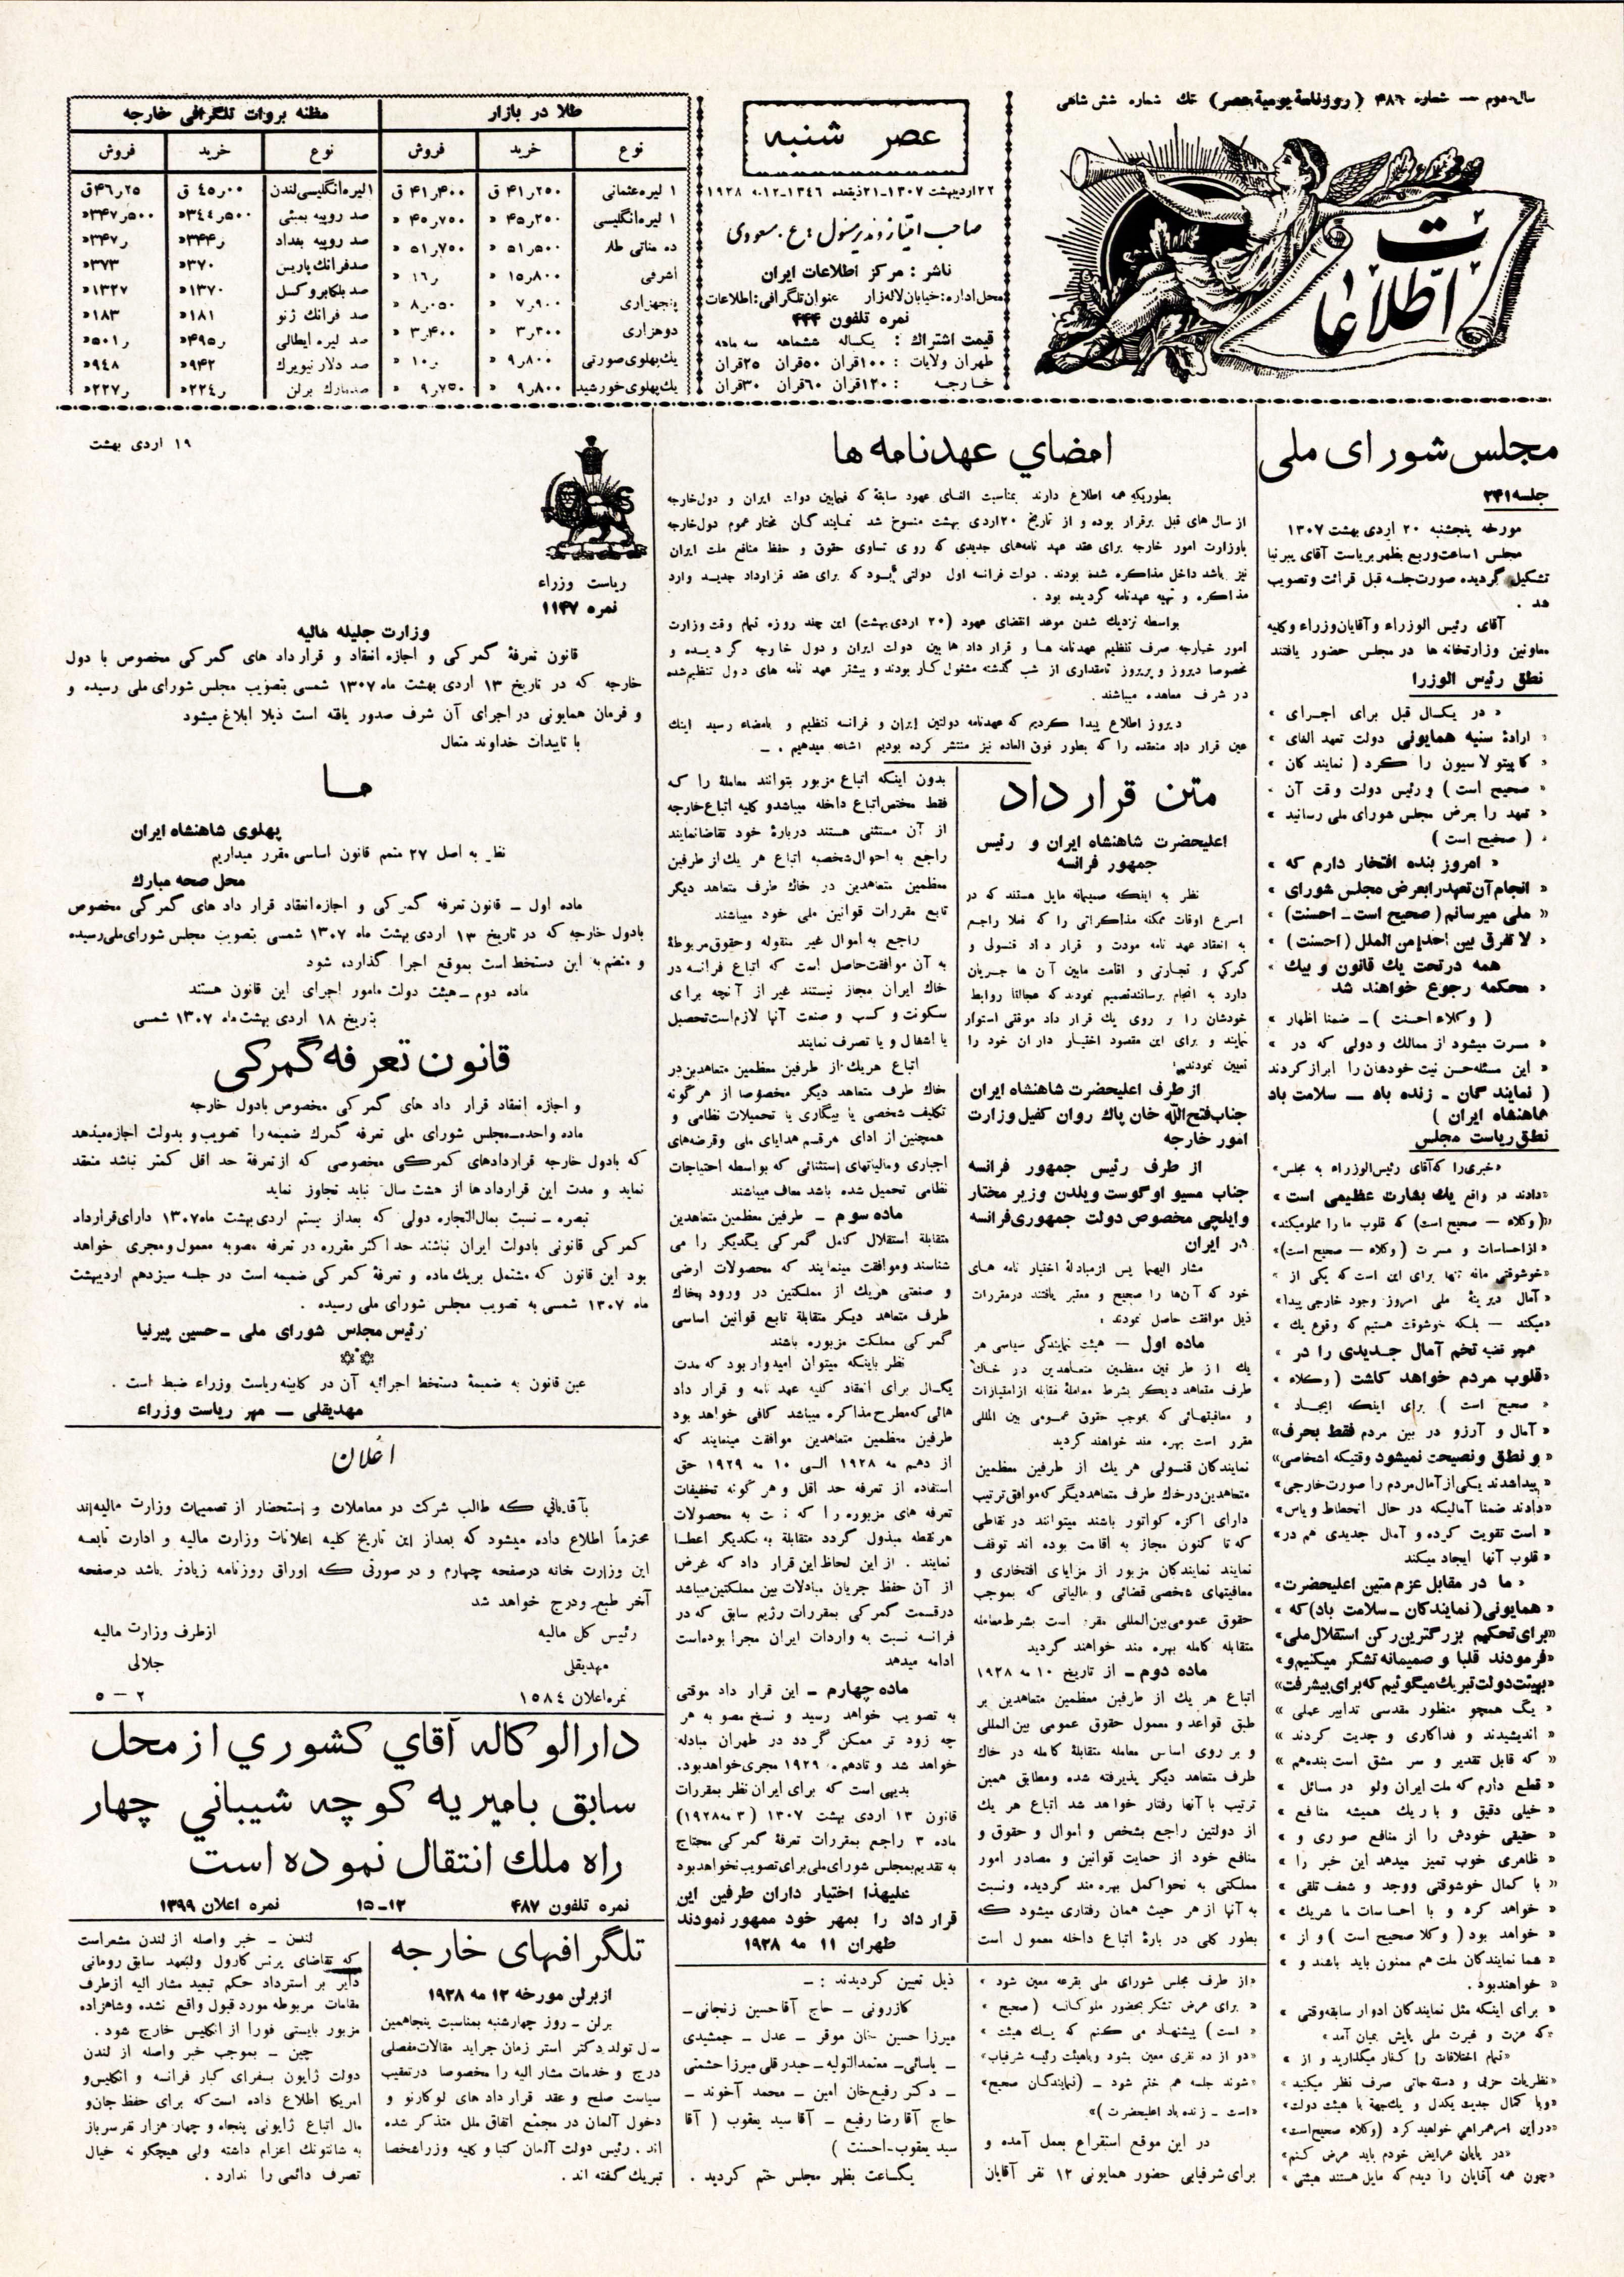 سال دوم — شماره ۴۸۶ (روزنامهٔ یومیهٔ عصر) تك شماره شش شاهی
اطلاعات
عصر شنبه
۲۲ اردیبهشت ۱۳۰۷-۲۱ ذیقعده ۱۳۴۶-۱۲ مه ۱۹۲۸
صاحب امتیاز و مدیر مسئول: ع. مسعودی
ناشر : مرکز اطلاعات ایران
محل اداره: خیابان لاله‌زار عنوان تلگرافی: اطلاعات
نمره تلفون ۴۴۴
قیمت اشتراك : یکساله ششماهه سه ماهه
طهران ولایات : ۱۰۰قران ۵۰قران ۲۵قران
خارجه : ۱۲۰قران ۶۰قران ۳۰قران
طلا در بازار
نوع خرید فروش
۱ لیره عثمانی ۲۵۰ر۴۱ ق ۴۰۰ر۴۱ ق
۱ لیره انگلیسی ۲۵۰ر۴۵ « ۷۵۰ر۴۵ «
ده مناتی طلا ۵۰۰ر۵۱ « ۷۵۰ر۵۱ «
اشرفی ۸۰۰ر۱۵ « ر۱۶ «
پنجهزاری ۹۰۰ر۷ « ۰۵۰ر۸ «
دوهزاری ۳۰۰ر۳ « ۴۰۰ر۳ «
یك پهلوی صورتی ۸۰۰ر۹ « ر۱۰ «
یك پهلوی خورشید ۸۰۰ر۹ « ۷۵۰ر۹ «
مظنه بروات تلگرافی خارجه
نوع خرید فروش
۱لیره انگلیسی لندن ۰۰ر۴۵ ق ۲۵ر۴۶ق
صد روپیه بمبئی ۵۰۰ر۳۴۴« ۵۰۰ر۳۴۷«
صد روپیه بغداد ر۳۴۴« ر۳۴۷«
صد فرانك پاریس ۳۷۰« ۳۷۳«
صد بلگا بروکسل ۱۳۷۰« ۱۳۲۷«
صد فرانك ژنو ۱۸۱« ۱۸۳«
صد لیره ایطالی ر۴۹۵« ر۵۰۱«
صد دلار نیویرك ۹۴۲« ۹۴۸«
صد مارك برلن ر۲۲۴« ر۲۲۷«
مجلس شورای ملی
جلسه ۲۴۱
مورخه پنجشنبه ۲۰ اردی بهشت ۱۳۰۷
مجلس ۱ ساعت و ربع بظهر بریاست آقای پیرنیا
تشکیل گردیده صورت جلسه قبل قرائت و تصویب
شد .
آقای رئیس الوزراء و آقایان وزراء و کلیه
معاونین وزارتخانه ها در مجلس حضور یافتند
نطق رئیس الوزرا
« در یکسال قبل برای اجرای »
« ارادهٔ سنیه همایونی دولت تعهد الغای »
« کاپیتولاسیون را کرد ( نمایند کان »
« صحیح است ) و رئیس دولت وقت آن »
« تعهد را بعرض مجلس شورای ملی رسانید »
« ( صحیح است )
« امروز بنده افتخار دارم که »
« انجام آن تعهد را بعرض مجلس شورای »
« ملی میرسانم ( صحیح است ـ احسنت) »
« لا تفرق بین احد من الملل ( احسنت) »
همه در تحت یك قانون و بیك »
« محکمه رجوع خواهند شد
( وکلاء احسنت ) ـ ضمنا اظهار »
« مسرت میشود از ممالك و دولی که در »
« این مسئله حسن نیت خودشان را ابراز کردند
( نمایند گان ـ زنده باد — سلامت باد
شاهنشاه ایران )
نطق ریاست مجلس
«خبری را که آقای رئیس الوزراء به مجلس»
«دادند در واقع یك بشارت عظیمی است »
«(وکلاء — صحیح است) که قلوب ما را مملو میکند»
« از احساسات و مسرت (وکلاء — صحیح است)»
«خوشوقتی ما نه تنها برای این است که یکی از »
« آمال دیرینهٔ ملی امروز وجود خارجی پیدا »
«میکند — بلکه خوشوقت هستیم که وقوع یك »
همچو قضیه تخم آمال جدیدی را در »
«قلوب مردم خواهد کاشت ( وکلاء »
« صحیح است ) برای اینکه ایجاد »
« آمال و آرزو در بین مردم فقط بحرف»
« و نطق و نصیحت نمیشود وقتیکه اشخاصی»
« پیدا شدند یکی از آمال مردم را صورت خارجی»
«دادند ضمنا آمالیکه در حال انحطاط و یاس»
« است تقویت کرده و آمال جدیدی هم در»
« قلوب آنها ایجاد میکند
« ما در مقابل عزم متین اعلیحضرت»
« همایونی (نمایندکان ـ سلامت باد) که »
«برای تحکیم بزرگترین رکن استقلال ملی»
«فرمودند قلبا و صمیمانه تشکر میکنیم و»
«بهیئت دولت تبریك میگوئیم که برای پیشرفت»
« یك همچو منظور مقدسی تدابیر عملی »
« اندیشیدند و فداکاری و جدیت کردند »
« که قابل تقدیر و سر مشق است بنده هم »
« قطع دارم که ملت ایران ولو در مسائل »
« خیلی دقیق و باریك همیشه منافع »
« حقیقی خودش را از منافع صوری و »
« ظاهری خوب تمیز میدهد این خبر را »
« با کمال خوشوقتی و وجد و شعف تلقی »
« خواهد کرد و با احساسات ما شریك »
« خواهد بود ( وکلا صحیح است ) و از »
« شما نمایندکان ملت هم ممنون باید باشند و »
« خواهند بود .
« برای اینکه مثل نمایندکان ادوار سابقه وقتی »
«که عزت و غیرت ملی پایش بمیان آمد»
«تمام اختلافات را کنار میگذارید و از »
«نظریات حزبی و دسته جاتی صرف نظر میکنید»
«و با کمال جدیت یکدل و یکجهة با هیئت دولت»
«در این امر همراهی خواهید کرد (وکلاء صحیح است»
«در پایان عرایض خودم باید عرض کنم»
«چون همه آقایان را دیدم که مایل هستند هیئتی »
امضاي عهدنامه ها
بطوریکه همه اطلاع دارند بمناسبت الغای عهود سابقهٔ که فیمابین دولت ایران و دول خارجه
از سال های قبل برقرار بوده و از تاریخ ۲۰ اردی بهشت منسوخ شد نمایند گان مختار عموم دول خارجه
با وزارت امور خارجه برای عقد عهد نامه‌های جدیدی که روی تساوی حقوق و حفظ منافع ملت ایران
نیز باشد داخل مذاکره شده بودند . دولت فرانسه اول دولتی بود که برای عقد قرارداد جدید وارد
مذاکره و تهیه عهدنامه گردیده بود .
بواسطه نزدیك شدن موعد انقضای عهود (۲۰ اردی بهشت) این چند روزه تمام وقت وزارت
امور خارجه صرف تنظیم عهدنامه ها و قرار داد ها بین دولت ایران و دول خارجه گردیده و
مخصوصا دیروز و پریروز تا مقداری از شب گذشته مشغول کار بودند و بیشتر عهد نامه های دول تنظیم شده
در شرف معاهده میباشند .
دیروز اطلاع پیدا کردیم که عهدنامه دولتین ایران و فرانسه تنظیم و بامضاء رسید اینك
عین قرار داد منعقده را که بطور فوق العاده نیز منتشر کرده بودیم اشاعه میدهیم . ـ
متن قرار داد
اعلیحضرت شاهنشاه ایران و رئیس
جمهور فرانسه
نظر به اینکه صمیمانه مایل هستند که در
اسرع اوقات ممکنه مذاکراتی را که فعلا راجع
به انعقاد عهد نامه مودت و قرار داد قنسولی و
گمرکی و تجارتی و اقامت مابین آن ها جریان
دارد به انجام برسانند تصمیم نمودند که عجالتا روابط
خودشان را بر روی یك قرار داد موقتی استوار
نمایند و برای این مقصود اختیار داران خود را
تعیین نمودند:
از طرف اعلیحضرت شاهنشاه ایران
جناب فتح الله خان پاك روان کفیل وزارت
امور خارجه
از طرف رئیس جمهور فرانسه
جناب مسیو اوگوست ویلدن وزیر مختار
و ایلچی مخصوص دولت جمهوری فرانسه
در ایران
مشار الیهما پس از مبادلهٔ اختیار نامه های
خود که آن‌ها را صحیح و معتبر یافتند در مقررات
ذیل موافقت حاصل نمودند :
ماده اول — هیئت نمایندگی سیاسی هر
یك از طرفین معظمین متعاهدین در خاك
طرف متعاهد دیگر بشرط معاملهٔ متقابله از امتیازات
و معافیتهائی که بموجب حقوق عمومی بین المللی
مقرر است بهره مند خواهند گردید
نمایندکان قنسولی هر یك از طرفین معظمین
متعاهدین در خاك طرف متعاهد دیگر که موافق ترتیب
دارای اکزه کواتور باشند میتوانند در نقاطی
که تا کنون مجاز به اقامت بوده اند توقف
نمایند نمایندکان مزبور از مزایای افتخاری و
معافیتهای شخصی قضائی و مالیاتی که بموجب
حقوق عمومی بین المللی مقرر است بشرط معامله
متقابله کامله بهره مند خواهند گردید
ماده دوم ـ از تاریخ ۱۰ مه ۱۹۲۸
اتباع هر یك از طرفین معظمین متعاهدین بر
طبق قواعد و معمول حقوق عمومی بین المللی
و بر روی اساس معامله متقابلهٔ کامله در خاك
طرف متعاهد دیگر پذیرفته شده و مطابق همین
ترتیب با آنها رفتار خواهد شد اتباع هر یك
از دولتین راجع بشخص و اموال و حقوق و
منافع خود از حمایت قوانین و مصادر امور
مملکتی به نحو اکمل بهره مند گردیده و نسبت
به آنها از هر حیث همان رفتاری میشود که
بطور کلی در بارهٔ اتباع داخله معمول است
بدون اینکه اتباع مزبور بتوانند معاملهٔ را که
فقط مختص اتباع داخله میباشد و کلیه اتباع خارجه
از آن مستثنی هستند دربارهٔ خود تقاضا نمایند
راجع به احوال شخصیه اتباع هر یك از طرفین
معظمین متعاهدین در خاك طرف متعاهد دیگر
تابع مقررات قوانین ملی خود میباشند
راجع به اموال غیر منقوله و حقوق مربوطهٔ
به آن موافقت حاصل است که اتباع فرانسه در
خاك ایران مجاز نیستند غیر از آنچه برای
سکونت و کسب و صنعت آنها لازم است تحصیل
یا اشغال و یا تصرف نمایند
اتباع هریك از طرفین معظمین متعاهدین در
خاك طرف متعاهد دیگر مخصوصا از هر گونه
تکلیف شخصی یا بیگاری یا تحمیلات نظامی و
همچنین از ادای هر قسم هدایای ملی و قرضه‌های
اجباری و مالیاتهای استثنائی که بواسطه احتیاجات
نظامی تحمیل شده باشد معاف میباشند
ماده سوم ـ طرفین معظمین متعاهدین
متقابلة استقلال کامل گمرکی یکدیگر را می
شناسند و موافقت مینمایند که محصولات ارضی
و صنعتی هریك از مملکتین در ورود بخاك
طرف متعاهد دیگر متقابلة تابع قوانین اساسی
گمرکی مملکت مزبوره باشند
نظر باینکه میتوان امیدوار بود که مدت
یکسال برای انعقاد کلیه عهد نامه و قرار داد
هائی که مطرح مذاکره میباشد کافی خواهد بود
طرفین معظمین متعاهدین موافقت مینمایند که
از دهم مه ۱۹۲۸ الی ۱۰ مه ۱۹۲۹ حق
استفاده از تعرفه حد اقل و هر گونه تخفیفات
تعرفه های مزبوره را که نسبت به محصولات
هر نقطه مبذول گردد متقابلة به یکدیگر اعطا
نمایند . از این لحاظ این قرار داد که غرض
از آن حفظ جریان مبادلات بین مملکتین میباشد
در قسمت گمرکی بمقررات رژیم سابق که در
فرانسه نسبت به واردات ایران مجرا بوده است
ادامه میدهد
ماده چهارم ـ این قرار داد موقتی
به تصویب خواهد رسید و نسخ مصوبه هر
چه زود تر ممکن گردد در طهران مبادله
خواهد شد و تا دهم مه ۱۹۲۹ مجری خواهد بود.
بدیهی است که برای ایران نظر بمقررات
قانون ۱۳ اردی بهشت ۱۳۰۷ (۳ مه ۱۹۲۸)
ماده ۳ راجع بمقررات تعرفهٔ گمرکی محتاج
به تقدیم بمجلس شورای ملی برای تصویب نخواهد بود
علیهذا اختیار داران طرفین این
قرار داد را بمهر خود ممهور نمودند
طهران ۱۱ مه ۱۹۲۸
«از طرف مجلس شورای ملی بقرعه معین شود »
« برای عرض تشکر بحضور ملوکانه (صحیح »
« است ) پیشنهاد می کنم که یك هیئت »
«دو از ده نفری معین بشود و با هیئت رئیسه شرفیاب»
«شوند جلسه هم ختم شود ـ (نمایندگان صحیح»
«است ـ زنده باد اعلیحضرت )»
در این موقع استقراع بعمل آمده و
برای شرفیابی حضور همایونی ۱۲ نفر آقایان
ذیل تعیین کردیدند : ـ
کازرونی ـ حاج آقا حسین زنجانی ـ
میرزا حسین خان موقر ـ عدل ـ جمشیدی
ـ یاسائی ـ معتمد التولیه ـ حیدر قلی میرزا حشمتی
ـ دکتر رفیع خان امین ـ محمد آخوند ـ
حاج آقا رضا رفیع ـ آقا سید یعقوب ( آقا
سید یعقوب ـ احسنت )
یکساعت بظهر مجلس ختم کردید .
۱۹ اردی بهشت
ریاست وزراء
نمره ۱۱۴۷
وزارت جلیله مالیه
قانون تعرفهٔ گمرکی و اجازه انعقاد و قرارداد های گمرکی مخصوص با دول
خارجه که در تاریخ ۱۳ اردی بهشت ماه ۱۳۰۷ شمسی بتصویب مجلس شورای ملی رسیده و
و فرمان همایونی در اجرای آن شرف صدور یافته است ذیلا ابلاغ میشود
با تاییدات خداوند متعال
ما
پهلوی شاهنشاه ایران
نظر به اصل ۲۷ متمم قانون اساسی مقرر میداریم
محل صحه مبارك
ماده اول ـ قانون تعرفه گمرکی و اجازه انعقاد قرار داد های گمرکی مخصوص
بادول خارجه که در تاریخ ۱۳ اردی بهشت ماه ۱۳۰۷ شمسی بتصویب مجلس شورای ملی رسیده
و منضم به این دستخط است بموقع اجرا گذارده شود
ماده دوم ـ هیئت دولت مامور اجرای این قانون هستند
بتاریخ ۱۸ اردی بهشت ماه ۱۳۰۷ شمسی
قانون تعرفه گمرکی
و اجازه انعقاد قرار داد های گمرکی مخصوص بادول خارجه
ماده واحده ـ مجلس شورای ملی تعرفه گمرك ضمیمه را تصویب و بدولت اجازه میدهد
که بادول خارجه قراردادهای گمرکی مخصوصی که از تعرفهٔ حد اقل کمتر نباشد منعقد
نماید و مدت این قراردادها از هشت سال نباید تجاوز نماید
تبصره ـ نسبت بمال التجاره دولی که بعد از بیستم اردی بهشت ماه ۱۳۰۷ دارای قرارداد
گمرکی قانونی بادولت ایران نباشند حد اکثر مقرره در تعرفه مصوبه معمول و مجری خواهد
بود این قانون که مشتمل بریك ماده و تعرفهٔ گمرکی ضمیمه است در جلسه سیزدهم اردیبهشت
ماه ۱۳۰۷ شمسی به تصویب مجلس شورای ملی رسیده .
رئیس مجلس شورای ملی ـ حسین پیرنیا
عین قانون به ضمیمهٔ دستخط اجرائیه آن در کابینه ریاست وزراء ضبط است .
مهدیقلی — مهر ریاست وزراء
اعلان
بآقایانی که طالب شرکت در معاملات و استحضار از تصمیمات وزارت مالیه‌اند
محترماً اطلاع داده میشود که بعداز این تاریخ کلیه اعلانات وزارت مالیه و ادارت تابعه
این وزارت خانه درصفحه چهارم و در صورتی که اوراق روزنامه زیادتر باشد درصفحه
آخر طبع و درج خواهد شد
رئیس کل مالیه ازطرف وزارت مالیه
مهدیقلی جلالی
نمره اعلان ۱۵۸۴ ۲ — ۵
دارالوکاله آقاي کشوري از محل
سابق بامیریه کوچه شیباني چهار
راه ملك انتقال نموده است
نمره تلفون ۴۸۷ ۱۲-۱۵ نمره اعلان ۱۳۹۹
تلگرافهای خارجه
از برلن مورخه ۱۲ مه ۱۹۲۸
برلن ـ روز چهارشنبه بمناسبت پنجاهمین
سال تولد دکتر استر زمان جراید مقالات مفصلی
درج و خدمات مشار الیه را مخصوصا در تعقیب
سیاست صلح و عقد قرار داد های لوکارنو و
دخول آلمان در مجمع اتفاق ملل متذکر شده
اند . رئیس دولت آلمان کتبا و کلیه وزرا شخصا
تبریك گفته اند .
لندن ـ خبر واصله از لندن مشعراست
که تقاضای پرنس کارول ولیعهد سابق رومانی
دایر بر استرداد حکم تبعید مشار الیه ازطرف
مقامات مربوطه مورد قبول واقع نشده و شاهزاده
مزبور بایستی فورا از انگلیس خارج شود .
چین ـ بموجب خبر واصله از لندن
دولت ژاپون بسفرای کبار فرانسه و انگلیس و
امریکا اطلاع داده است که برای حفظ جان و
مال اتباع ژاپونی پنجاه و چهار هزار نفر سرباز
به شانتونك اعزام داشته ولی هیچگونه خیال
تصرف دائمی را ندارد .